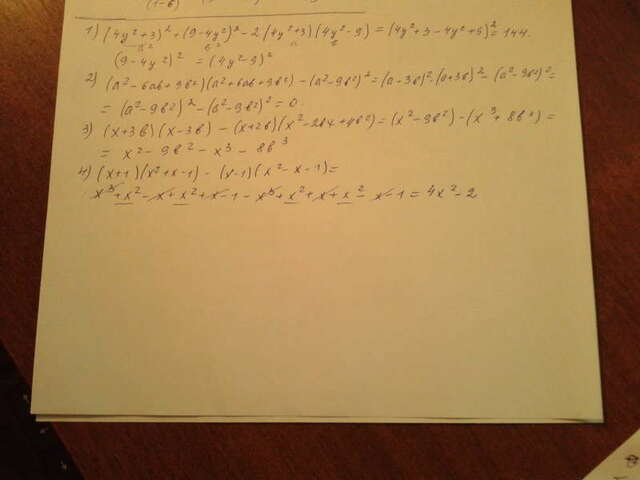 1) (4y²+3)²+(9-4y²)²-2(4y²+3)(4y²-9)=(4y²+3-4y²+9)²=144.
a² b² a b
(9-4y²)² = (4y²-9)²
2) (a²-6ab+9b²)(a²+6ab+9b²)-(a²-9b²)²=(a-3b)²·(a+3b)²-(a²-9b²)²=
= (a²-9b²)²-(a²-9b²)²=0.
3) (x+3b)(x-3b)-(x+2b)(x²-2bx+4b²)=(x²-9b²)-(x³+8b³)=
= x²-9b²-x³-8b³
4) (x+1)(x²+x-1)-(x-1)(x²-x-1)=
x³+x²-x+x²+x-1-x³+x²+x+x²-x-1=4x²-2